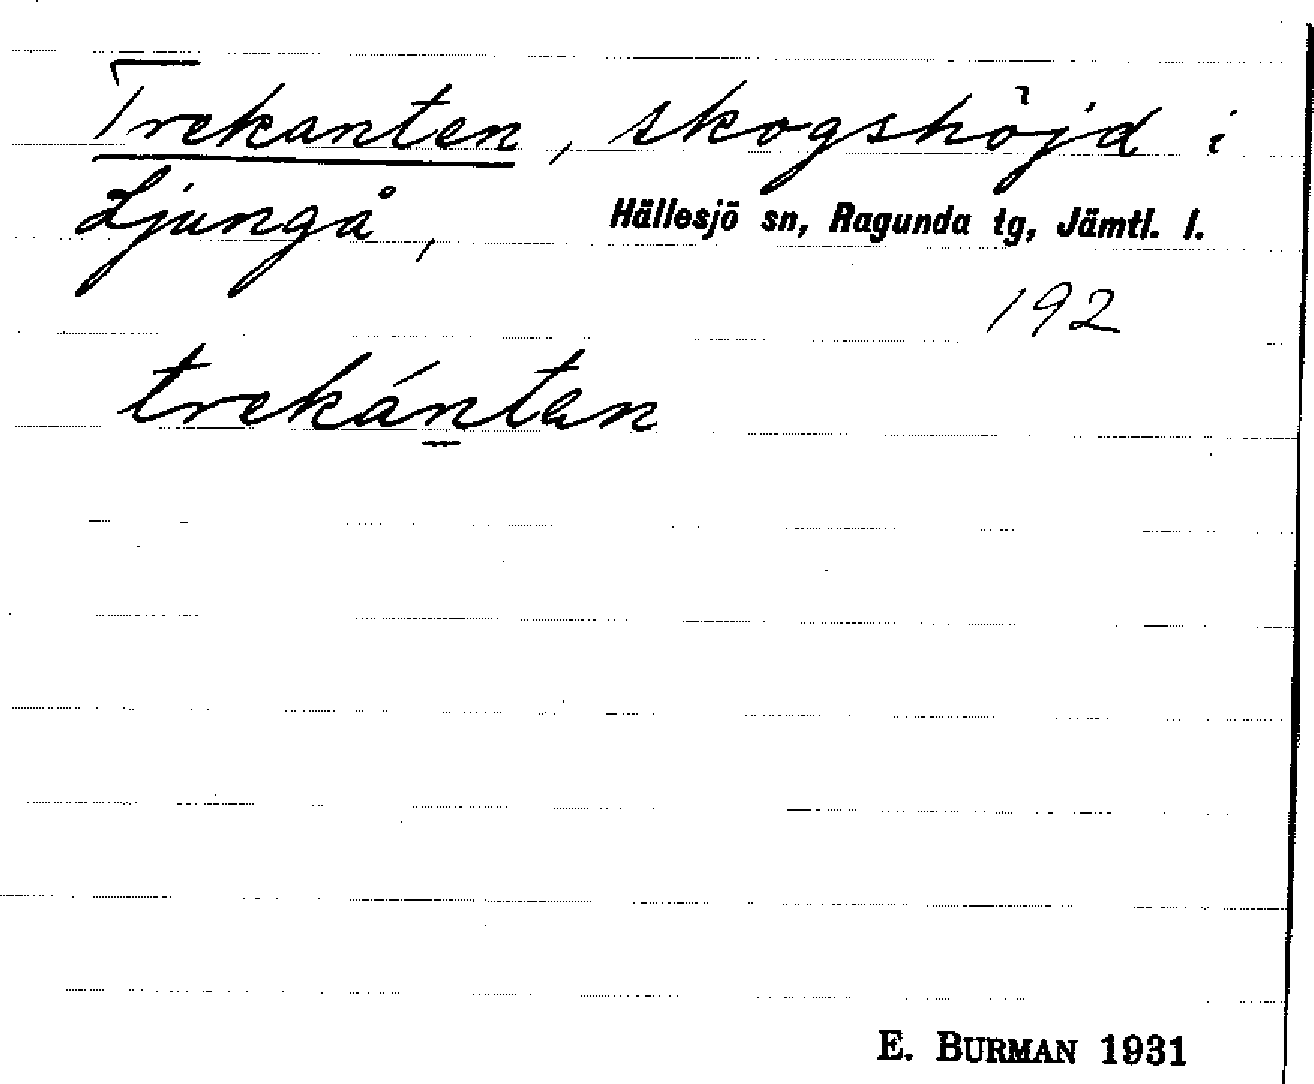 Trekanten, skogshöjd i
Ljungå, Hällesjö sn, Ragunda tg, Jämtl. l.
192
trekán̲tan
E. BURMAN 1931